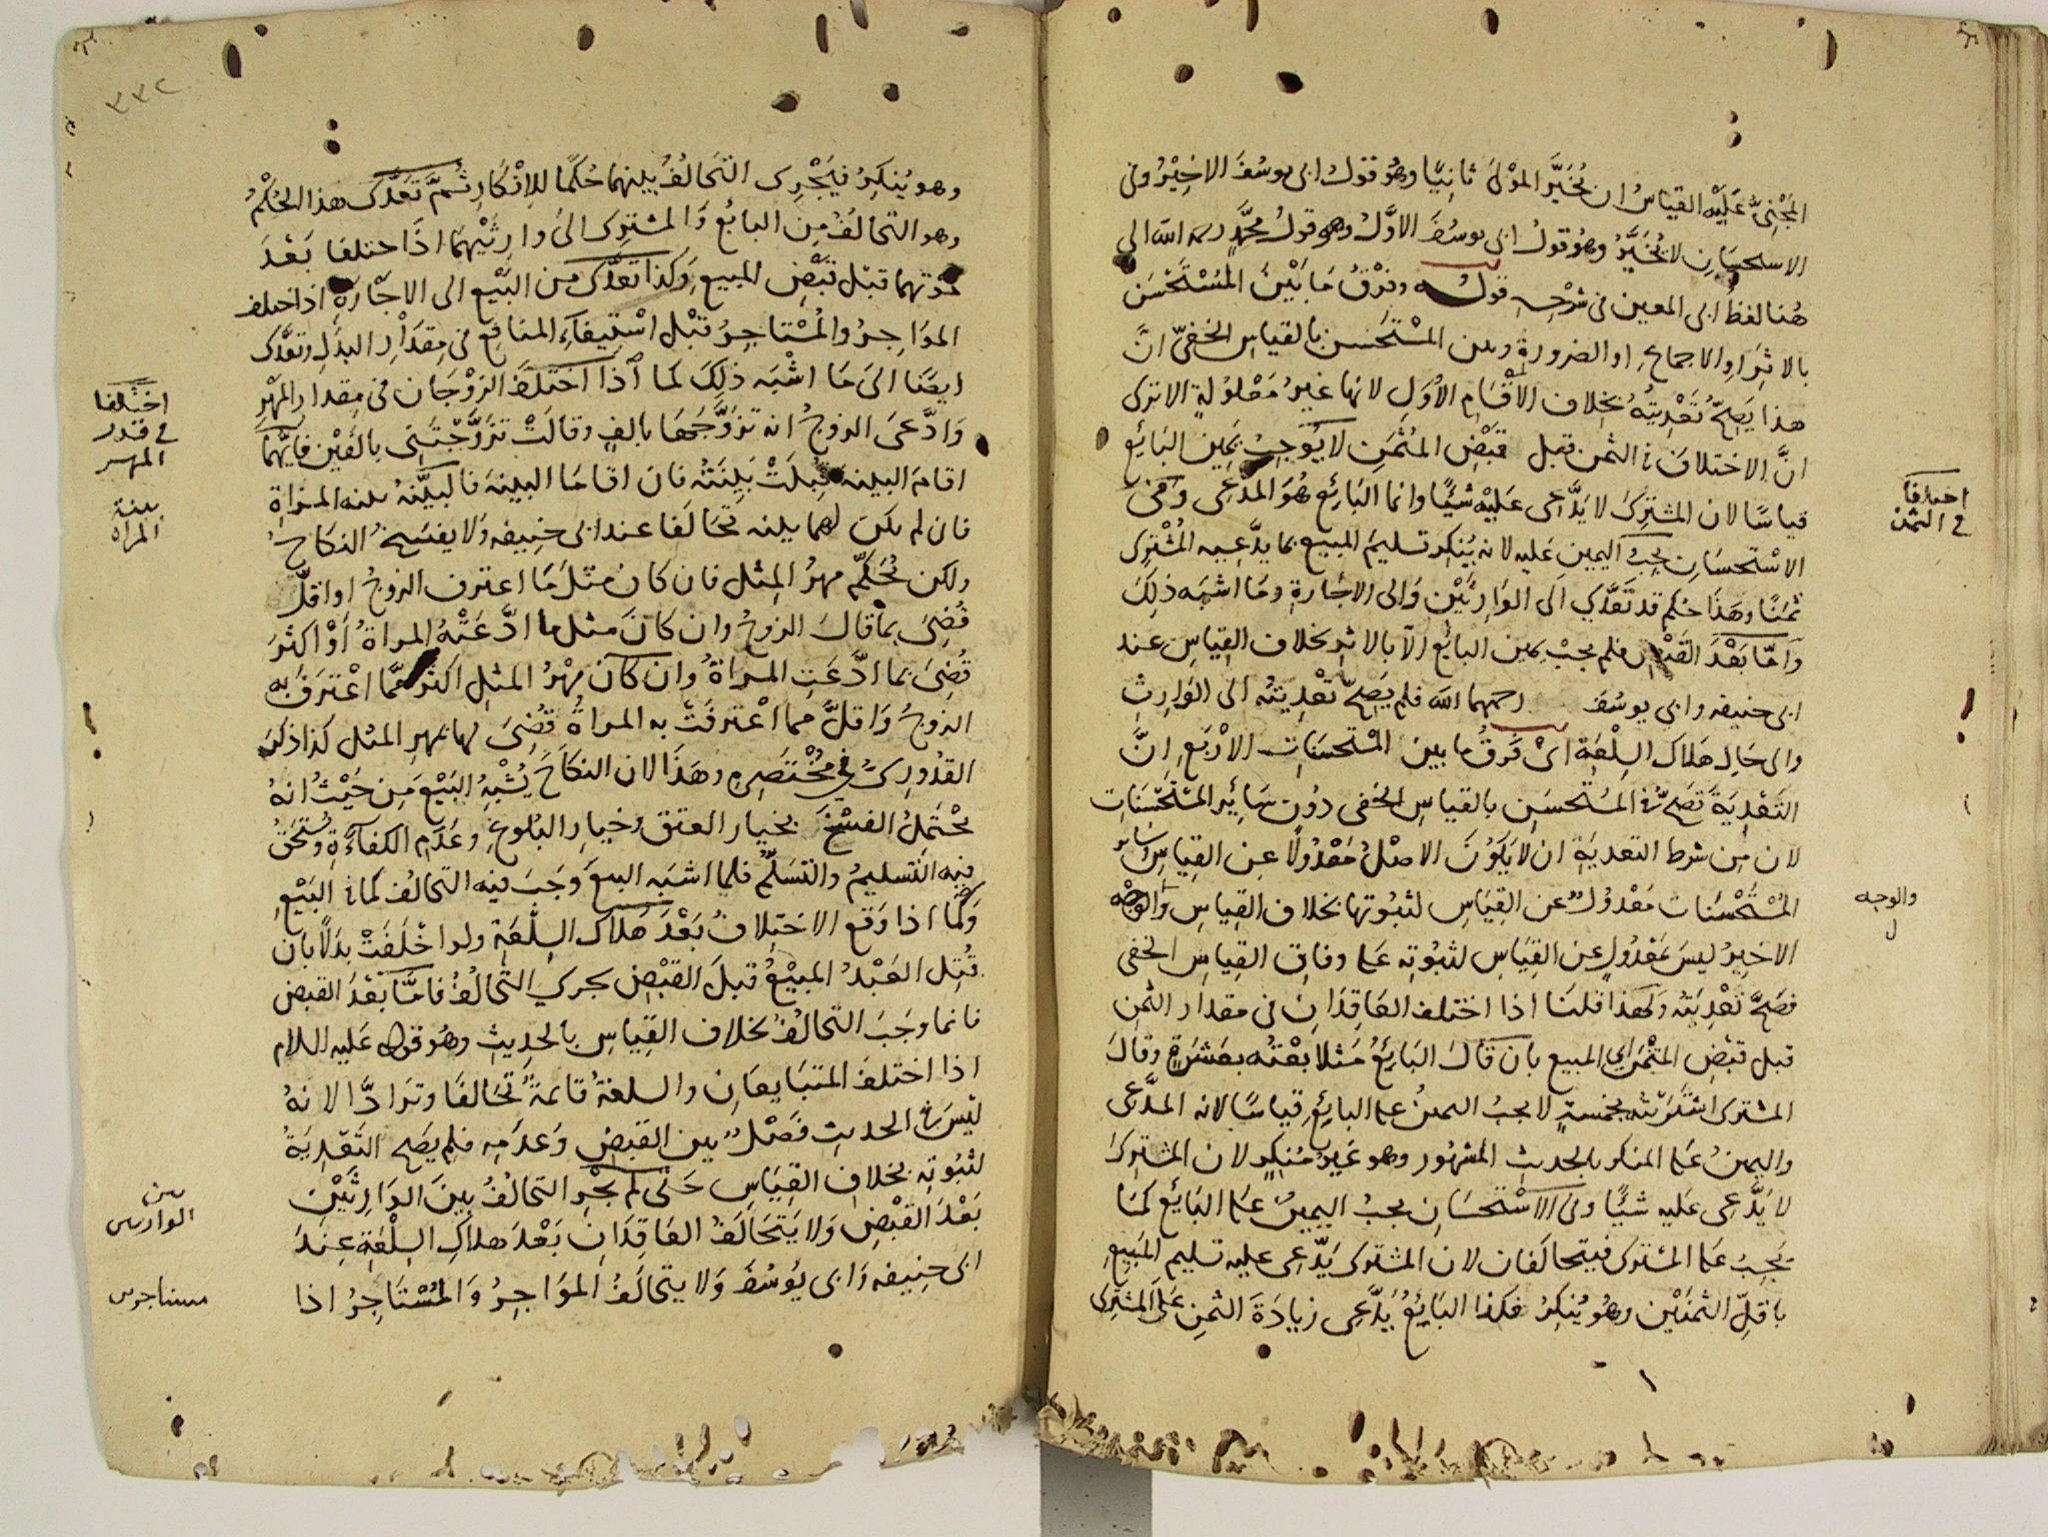 المجني عليه القياس ان يُخَيَّر المولى ثانيًا وهو قول ابي يوسف الاخير وفي
الاستحسان لا يُخيَّرُ وهو قول ابي يوسف الاوَّل وهو قول محمَّدٍ رحمه الله الى
هنا لفظ ابي المعين في شرحه قوله وفرْقُ مَا بَيْنَ المُسْتَحْسَن
بالاثر او الاجماع او الضرورة وبين المسْتَحسن بالقياس الخفيّ انَّ
هذا يَصِحّ تَعْدِيتُهُ بخلاف الاقْسَام الأوَل لانها غيرُ مَعْلولةٍ الا ترى
انَّ الاختلاف في الثمن قبل قبْض المُثْمَنِ لا يُوجِبُ يَمين البَائع
قياسًا لان المشتري لا يَدَّعى عَليْه شيئًا وانما البَائع هُوَ المدّعى وفي
الاسْتحسَان يجبُ اليمين عليه لانه يُنكِر تسليمَ المبيع بما يدَّعيه المُشْترى
ثمنًا وهَذَا حكم قد تَعَدَّى الَى الوَارِثَيْن وَالى الاجَارةِ ومَا اشبَه ذلكَ
وَامّا بَعْدَ القَبْض فلم يجبْ يمين البائع الّا بالاثر بخلاف القِياس عند
ابى حنيفه وابي يوسُفَ رحمهما الله فلم يَصِحّ تَعْدِيَتُه الى الوَارِثِ
والى حَال هَلاك السِلعَة اىْ فَرقُ ما بين المسْتحسَنات الارْبع انَّ
التَعْدِيَةَ تَصِحّ في المسْتحسَن بالقياس الخفى دُون سَائِر المسْتحْسَنَات
لان من شرط التعديَةِ ان لا يَكُوْنَ الاصْلُ مَعْدُولًا عن القِياس وسَائر
المُسْتَحْسَنات مَعْدُولٌ عن القِيَاس لثبُوتها بخلاف القِياس والوجه
الاخير ليسَ بمعْدُولٍ عن القِيَاس لثبُوته على وفاق القِياس الخفى
فصَحَّ تَعْدِيَتُه ولهذا قلنا اذا اختلف العَاقِدَان فى مقدار الثمن
قبل قبْض المثمَن اي المبيع بان قَالَ البَائِعُ مَثلا بعْتُه بعشرَةٍ وقالَ
المشترى اشتَرَيْتُه بخمسةٍ لا يجبُ اليمينُ على البائع قياسًا لانه المدَّعى
واليمينُ عَلى المنكر بالحديث المشهُور وهو غَيرُ مُنكِرٍ لان المشترىَ
لا يَدَّعِى عليه شيئًا وفى الاسْتحسَان يجبُ اليمينُ عَلى البَائع كمَا
يجبُ عَلى المشترى فيتحالَفان لان المشترى يَدّعى عليه تسليم المَبيع
باقلِّ الثمنَيْن وهُو يُنكِرُ فكذا البَايعُ يَدَّعِى زيادَة الثمن عَلى المشترى
اختلافا
في الثمن
والوجه
ل
٣٣٢
وهو يُنكِرُ فيَجْرِى التَحَالُفُ بينهما حُكمًا للاِنْكَار ثُمَّ تَعَدَّى هذا الحُكْمُ
وهو التحالفُ من البائع وَالمشترى الىُ وارِثَيْهِمَا اذَا اختلفا بَعْدَ
مَوْتهما قبْل قبْض المبيع وَكذا تعَدَّى من البَيْع الى الاجَارَة اذا اختلف
المؤاجِرُ والمُسْتَاجِرُ قبْل اسْتِيفَآءِ المنافع فى مِقدَار البدَلِ وتعَدَّى
ايضًا الىَ مَا اشْبَه ذلِكَ كما اذا اخْتَلَفَ الزوْجَان فى مِقدار المَهْرِ
وَادَّعَى الزوجُ انه تزَوَّجَهَا بالفٍ وقالَتْ تزَوَّجْتَنى بالفَيْن فايُّهمَا
اقامَ البينه قُبِلَتْ بَيِّنَتُه فان اقامَا البينةَ فالبيِّنَةُ بينه المراةِ
فان لم يكن لهما بينه تحَالَفا عند ابى حنيفه وَلا يفسَخ النكاحُ
ولكن يُحَكَّم مهرُ المِثل فان كان مثلَ مَا اعترف الزوجُ او اقلّ
قُضِىَ بما قالَ الزوجُ وان كانَ مثل ما ادَّعَتْهُ المراةُ أوْ اكثرَ
قُضِىَ بما ادَّعَتِ المراةُ وان كان مهْرُ المثلِ اكثر ممَّا اعْترَفَ به
الزوجُ وَاقلَّ مما اعْترفَتْ به المراةُ قُضِىَ لها بمهرِ المثل كذا ذكرَ
القدُورىّ في مُخْتَصَرِهِ وهَذَا لان النكاحَ يُشْبِهُ البَيْعَ من حَيْثُ انهُ
يحْتمِلُ الفسْخَ بخيار العتق وخيار البُلوغ وعَدَم الكفآءَةِ ويُسْتَحَقُ
فيه التسليمُ والتَسَلُّمُ فلما اشبَه البيعَ وَجَبَ فيه التحالف كما في البَيْع
وَكما اذا وَقع الاختِلافُ بَعْدَ هَلاك السِلعَةِ ولوا خْلَفَتْ بدَلًا بان
قُتِل العَبْدُ المبيْعُ قبلَ القبْض يجرى التَّحالُفُ فامَّا بَعْدَ القبض
فانما وجَبَ التحالُفُ بخلاف القِياس بالحديث وهُو قوله عَليه السلام
اذا اختلفَ المتبَايعَان والسلعةُ قائمَةٌ تحَالفَا وترَادَّا لانهُ
ليْسَ في الحديث فَصْلٌ بين القبض وَعدَمِه فلم يَصِح التَعْدِيَةُ
لثبُوته بخلاف القِيَاس حَتى لم يجْرِ التحالفُ بينَ الوَارِثَيْن
بَعْدَ القبْض وَلا يَتَحَالَفُ العَاقِدَانِ بَعْدَ هلاكِ السِلْعَةِ عِنْدَ
ابى حنيفه وَابى يُوسُفَ وَلا يتحَالَفُ المؤاجِرُ وَالمُسْتَاجِرُ اذا
اختلفا
في قدر
المهر
بينة
المراة
بين
الوارثين
مستاجرين